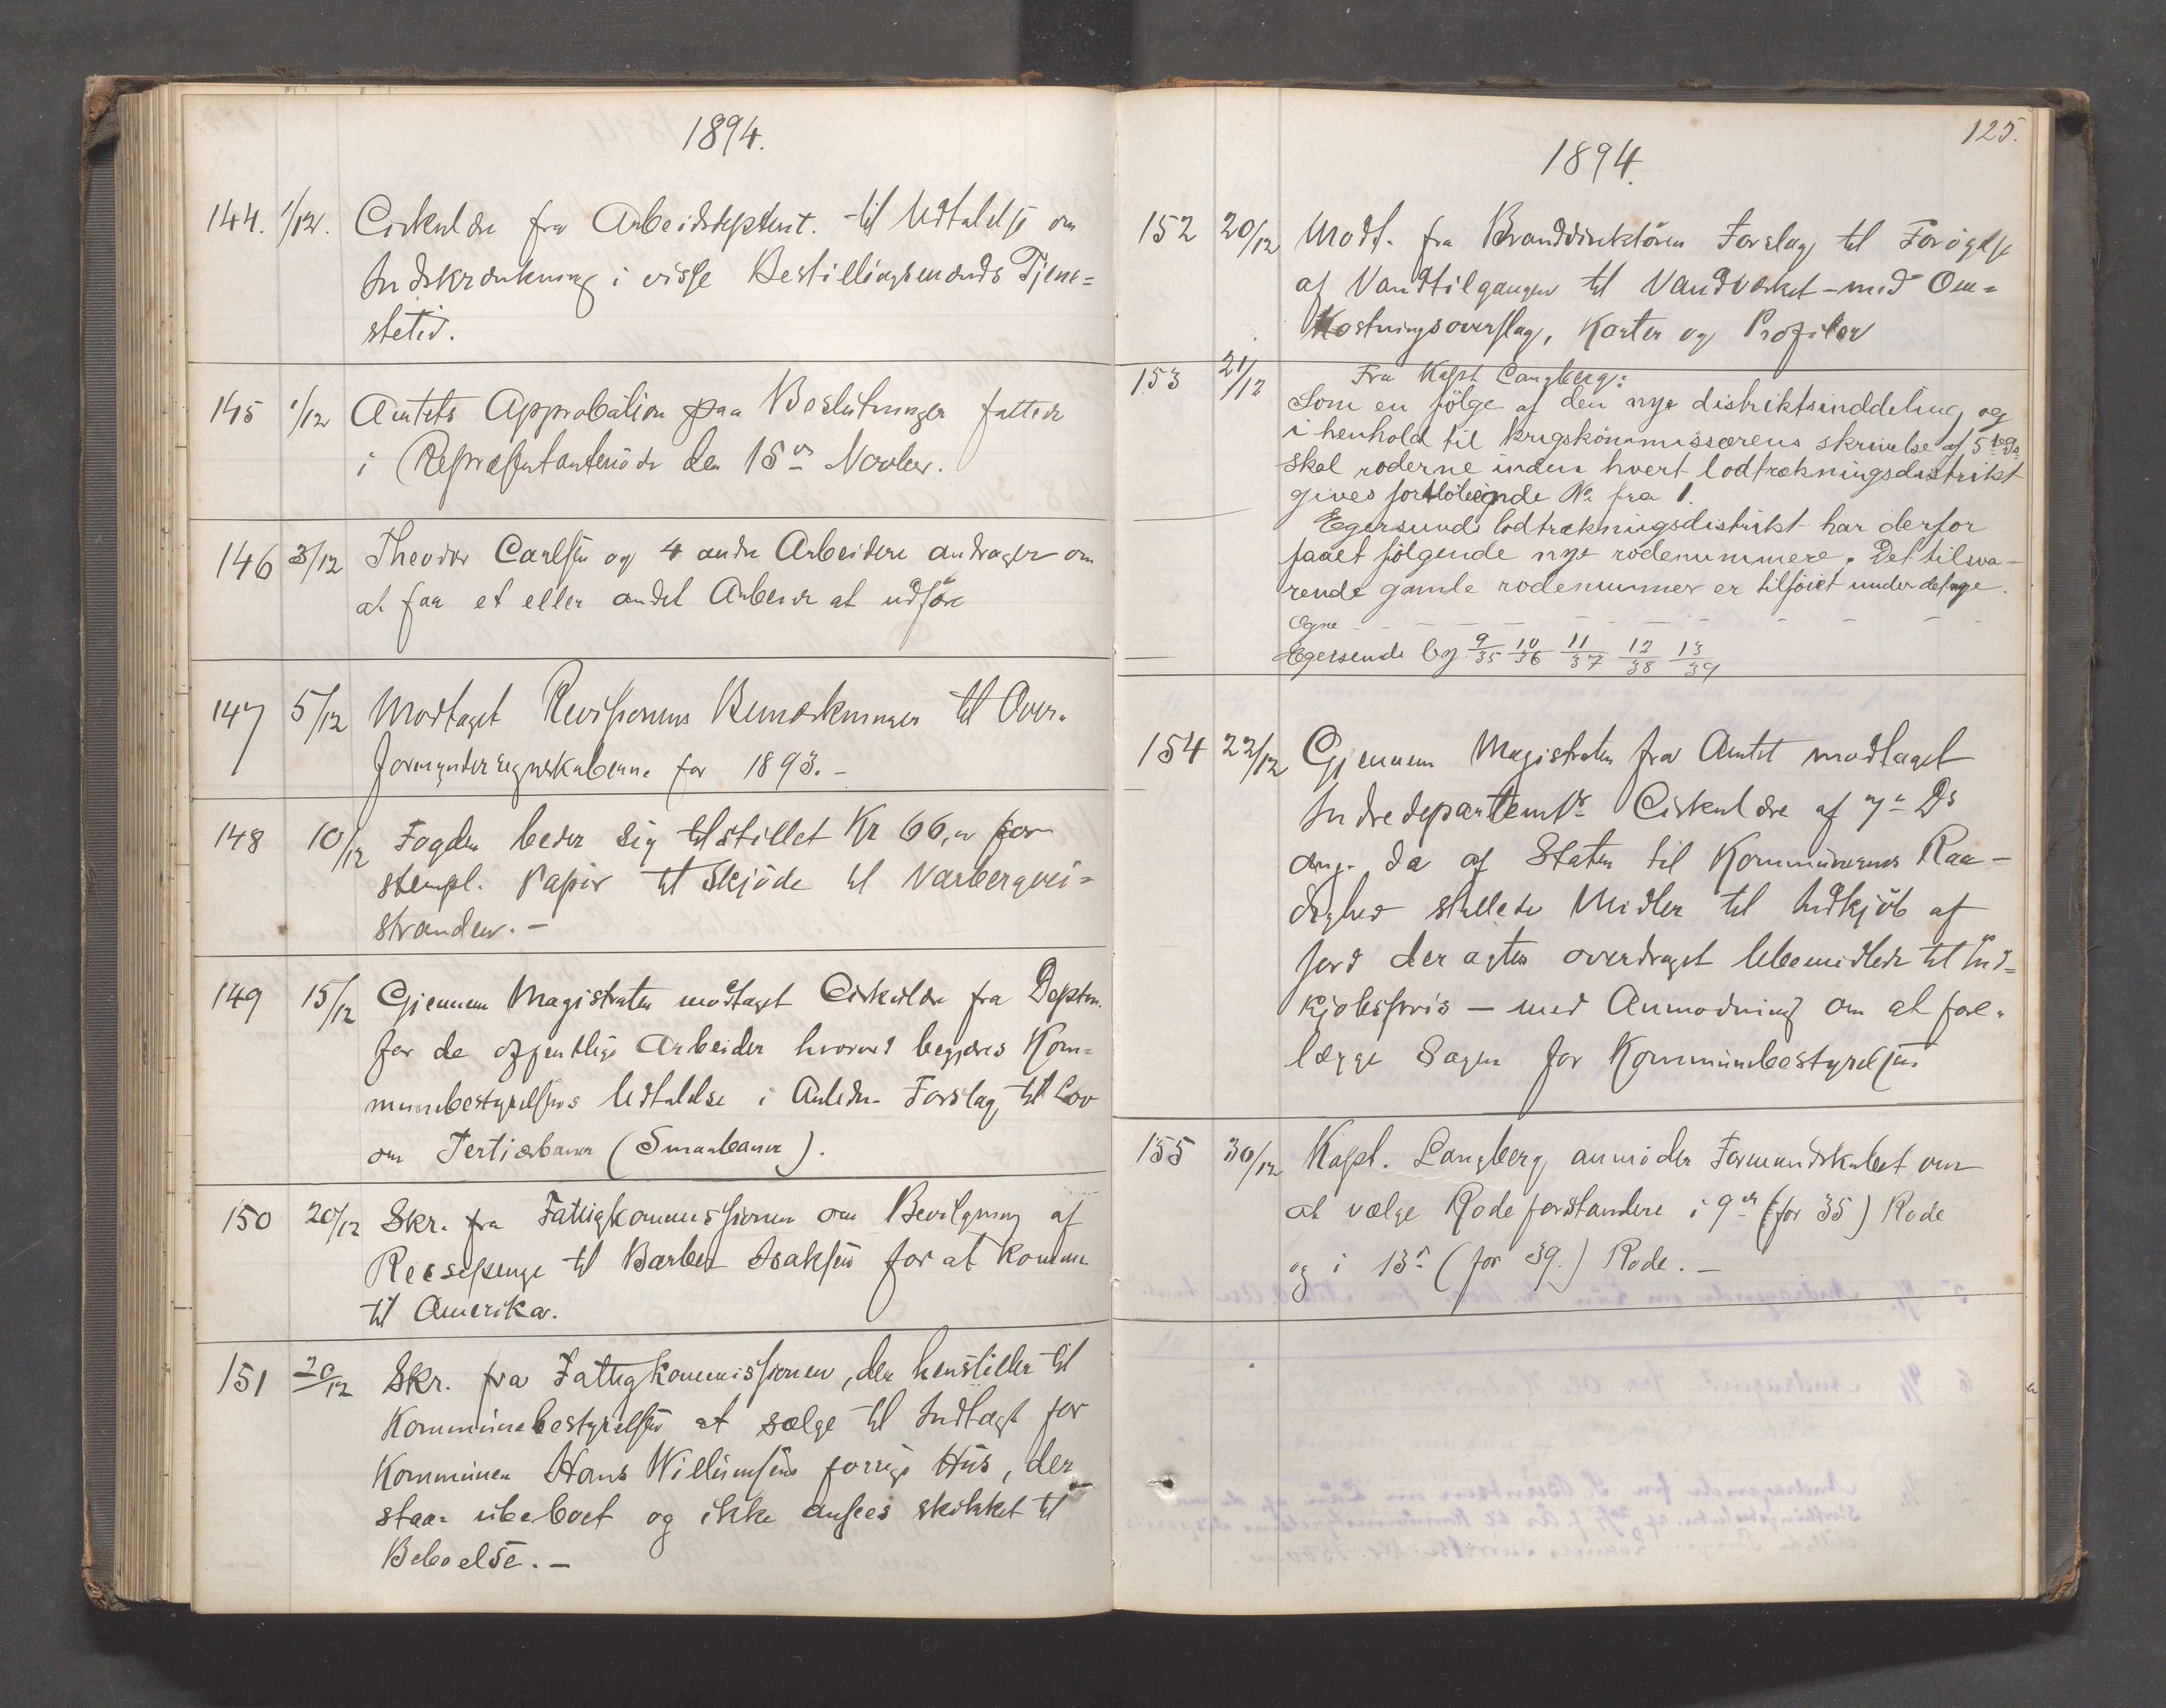 1894.
144. 1/12. Cirkulære fra Arbeidsdeptemt. til Udtalelse om
Indskrænkning i visse Bestillingsmænds Tjene=
stetid.
145 1/12 Amtets Approbation paa Beslutninger fattede
i Repræsentantmöde den 15de Novber.
146 3/12 Theodor Carlsen og 4 andre Arbeidere andrager om
at faa et eller andet Arbeide at udföre
147 5/12 Modtaget Revisionens Bemærkninger til Over-
formynderregnskaberne for 1893. -
148 10/12 Fogden beder sig tilstillet Kr 66, for
stempl. Papir til Skjöde til Varbergvei=
stranden. -
149 15/12 Gjennem Magistraten modtaget Cirkulære fra Deptm.
for de offentlige Arbeider hvorved begjæres Kom=
munebestyrelsens Udtalelse i Anledn. Forslag til Lov
om Tertiærbaner (Smaabaner).
150 20/12 Skr. fra Fattigkommissionen om Bevilgning af
Reisepenge til Barbert Isaksen for at komme
til Amerika.
151 20/12 Skr. fra Fattigkommissionen, der henstiller til
Kommunebestyrelsen at sælge til Indtægt for
Kommunen Hans Willumsens forrige Hus, der
staar ubeboet og ikke ansees skikket til
Beboelse. -
125.
1894.
152 20/12 Modt. fra Branddirektören Forslag til Forögelse
af Vandtilgangen til Vandværket - med Om=
kostningsoverslag, Karter og Profiler
153 21/12 Fra Kapt Langberg:
Som en fölge af den nye distriktsinddeling og
i henhold til krigskommissærens skrivelse af 5te ds
skal roderne inden hvert lodtrækningsdistrikt
gives fortlöbende No fra 1.
Egersunds lodtrækningsdistrikt har derfor
faaet fölgende nye rodenummere. Det tilsva-
rende gamle rodenummer er tilföiet under det nye.
Ogne - - - - - - - -
Egersunds by 9/35 10/36 11/37 12/38 13/39
154 22/12 Gjennem Magistraten fra Amtet modtaget
Indredepartemts Cirkulære af 7de Ds
ang. de af Staten til Kommunernes Raa-
dighed stillede Midler til Indkjöb af
Jord der agtes overdraget Ubemidlede til Ind=
kjöbspris - med Anmodning om at fore-
lægge Sagen for Kommunebestyrelsen
155 30/12 Kapt. Langberg anmoder Formandskabet om
at vælge Rodeforstandere i 9de (för 35) Rode
og i 13de (för 39.) Rode. -